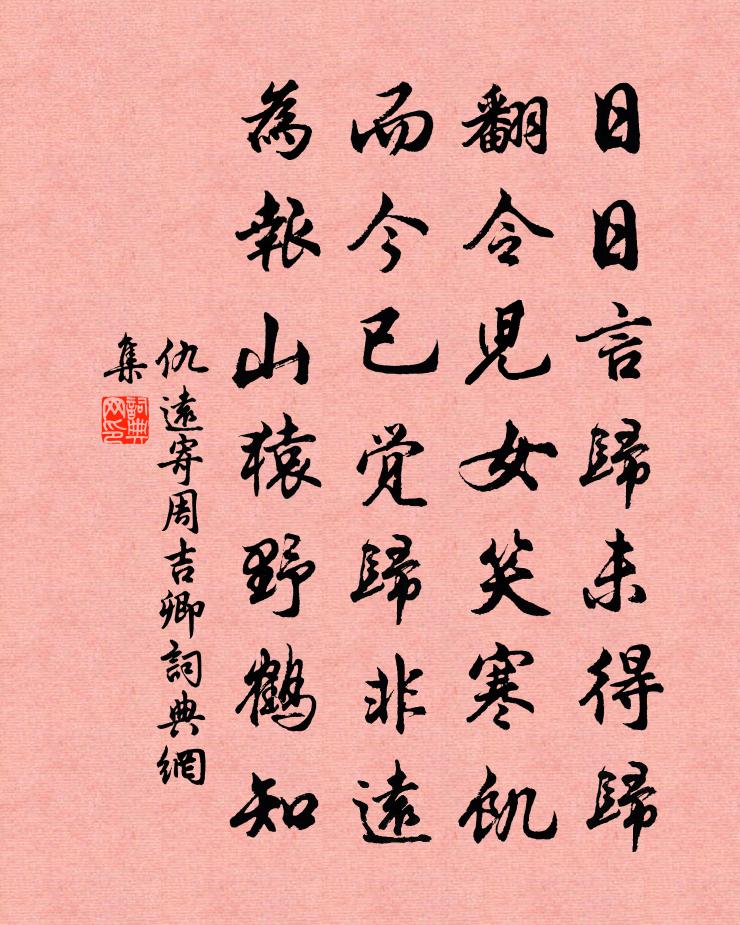 日日言歸未得歸
翻令児女笑寒飢
而今已覚歸非遠
為報山猿野鶴知
仇遠寄周吉卿詞典網
集
詞典
网印